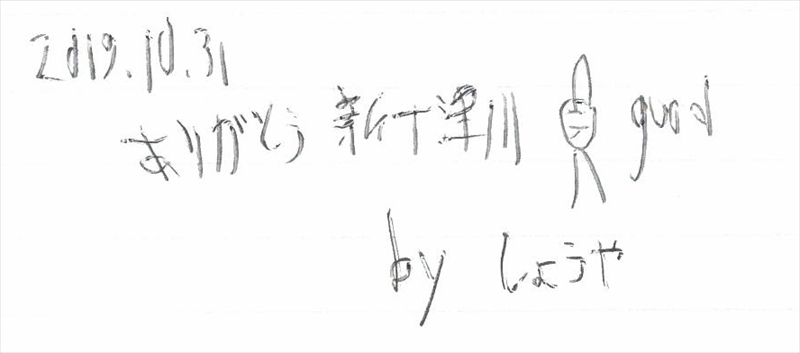 2019.10.31
ありがとう 新十津川 good
by しょうや